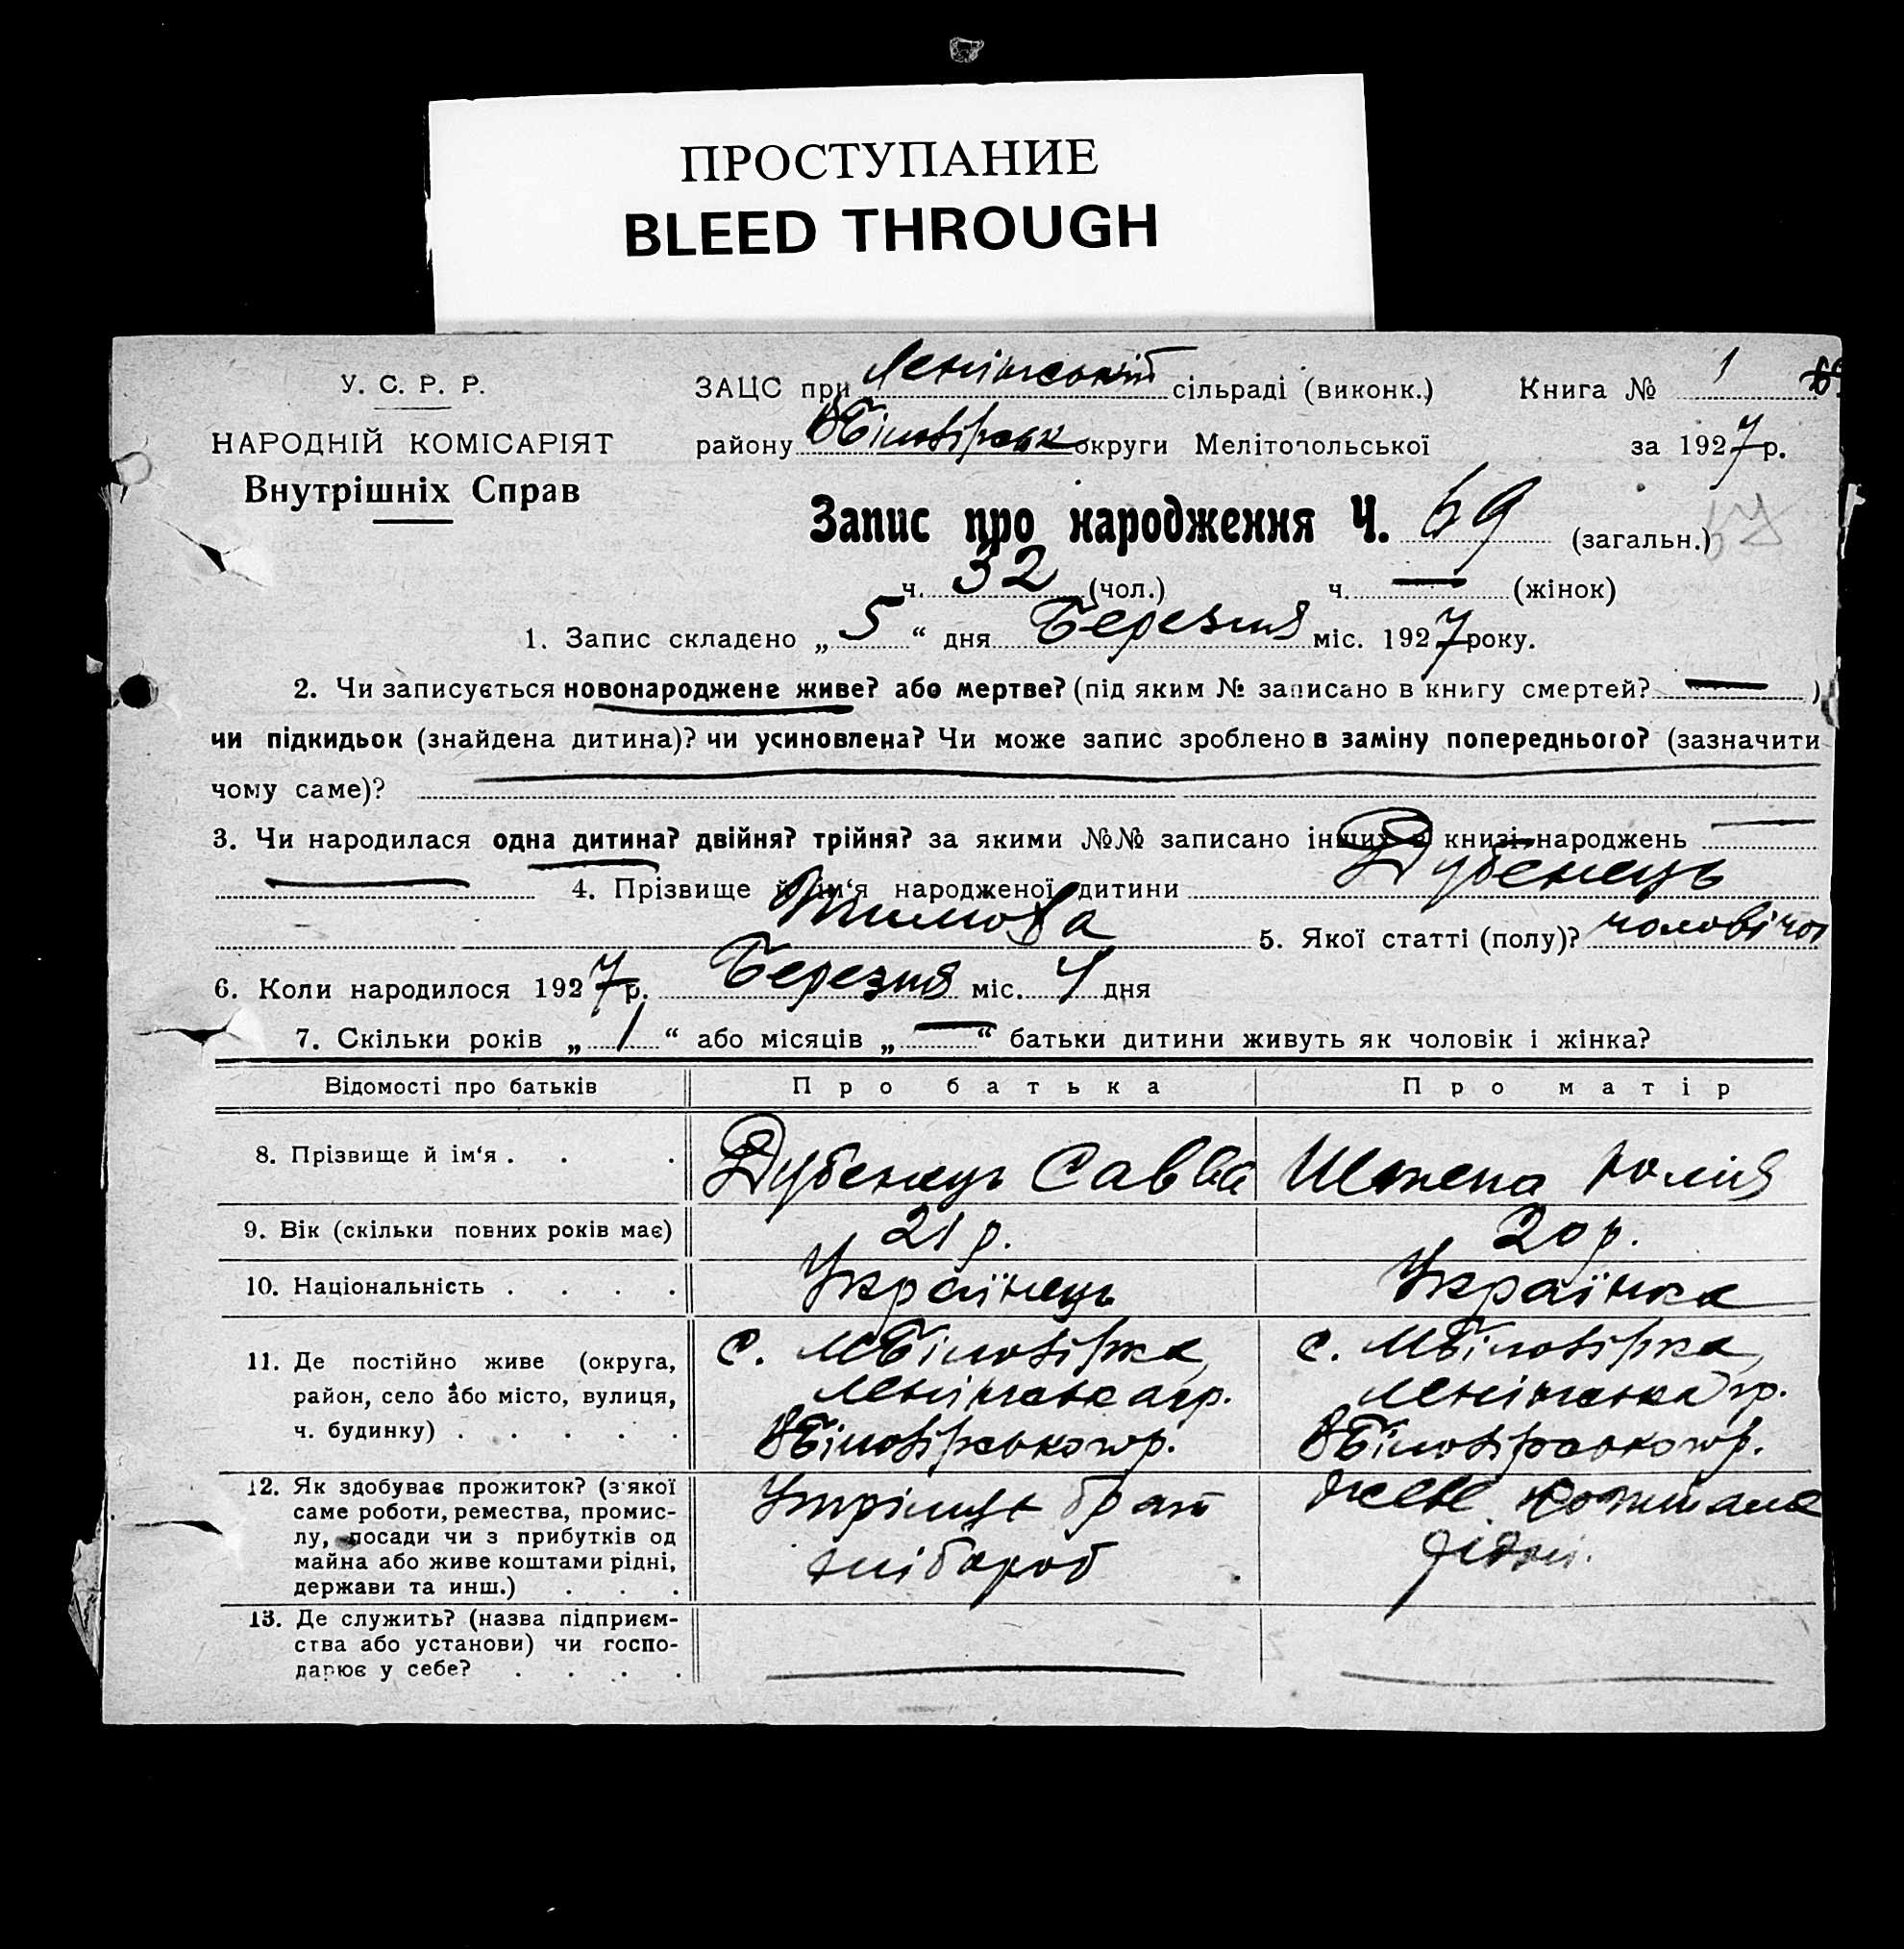 ПРОСТУПАНИЕ
BLEED THROUGH
У. С. Р. Р.
НАРОДНІЙ КОМІСАРІЯТ
Внутрішніх Справ
ЗАЦС при Ленінській сільраді (виконк.) Книга № 1
району ВБілозірськ округи Мелітопольської за 1927 р.
Запис про народження Ч. 69 (загальн.)
ч. 32 (чол.) ч. — (жінок)
1. Запис складено „ 5 “ дня Березня міс. 1927 року.
2. Чи записується новонароджене живе? або мертве? (під яким № записано в книгу смертей? — )
чи підкидьок (знайдена дитина)? чи усиновлена? Чи може запис зроблено в заміну попереднього? (зазначити
чому саме)?
3. Чи народилася одна дитина? двійня? трійня? за якими №№ записано інших в книзі народжень —
— 4. Прізвище й ім‘я народженої дитини Дубенець
5. Якої статті (полу)? чоловічої
6. Коли народилося 1927 р. Березня міс. 4 дня
7. Скільки років „ 1 “ або місяців „ — “ батьки дитини живуть як чоловік і жінка?
Відомості про батьків Про батька Про матір
8. Прізвище й ім‘я . . . Дубенець Савва Юлия
9. Вік (скільки повних років має) 21 р. 20 р.
10. Національність . . . . Українець Українка
11. Де постійно живе (округа,
район, село або місто, вулиця,
ч. будинку) . . . . .
с. МБілозірка,
Ленінська
ВБілозірського р.
с. МБілозірка,
Ленінська
ВБілозірського р.
12. Як здобуває прожиток? (з якої
саме роботи, ремества, промис-
лу, посади чи з прибутків од
майна або живе коштами рідні,
держави та инш.) . . .
брат
хлібороб
живе коштами
рідні.
13. Де служить? (назва підприєм-
ства або установи) чи госпо-
дарює у себе? . . . .